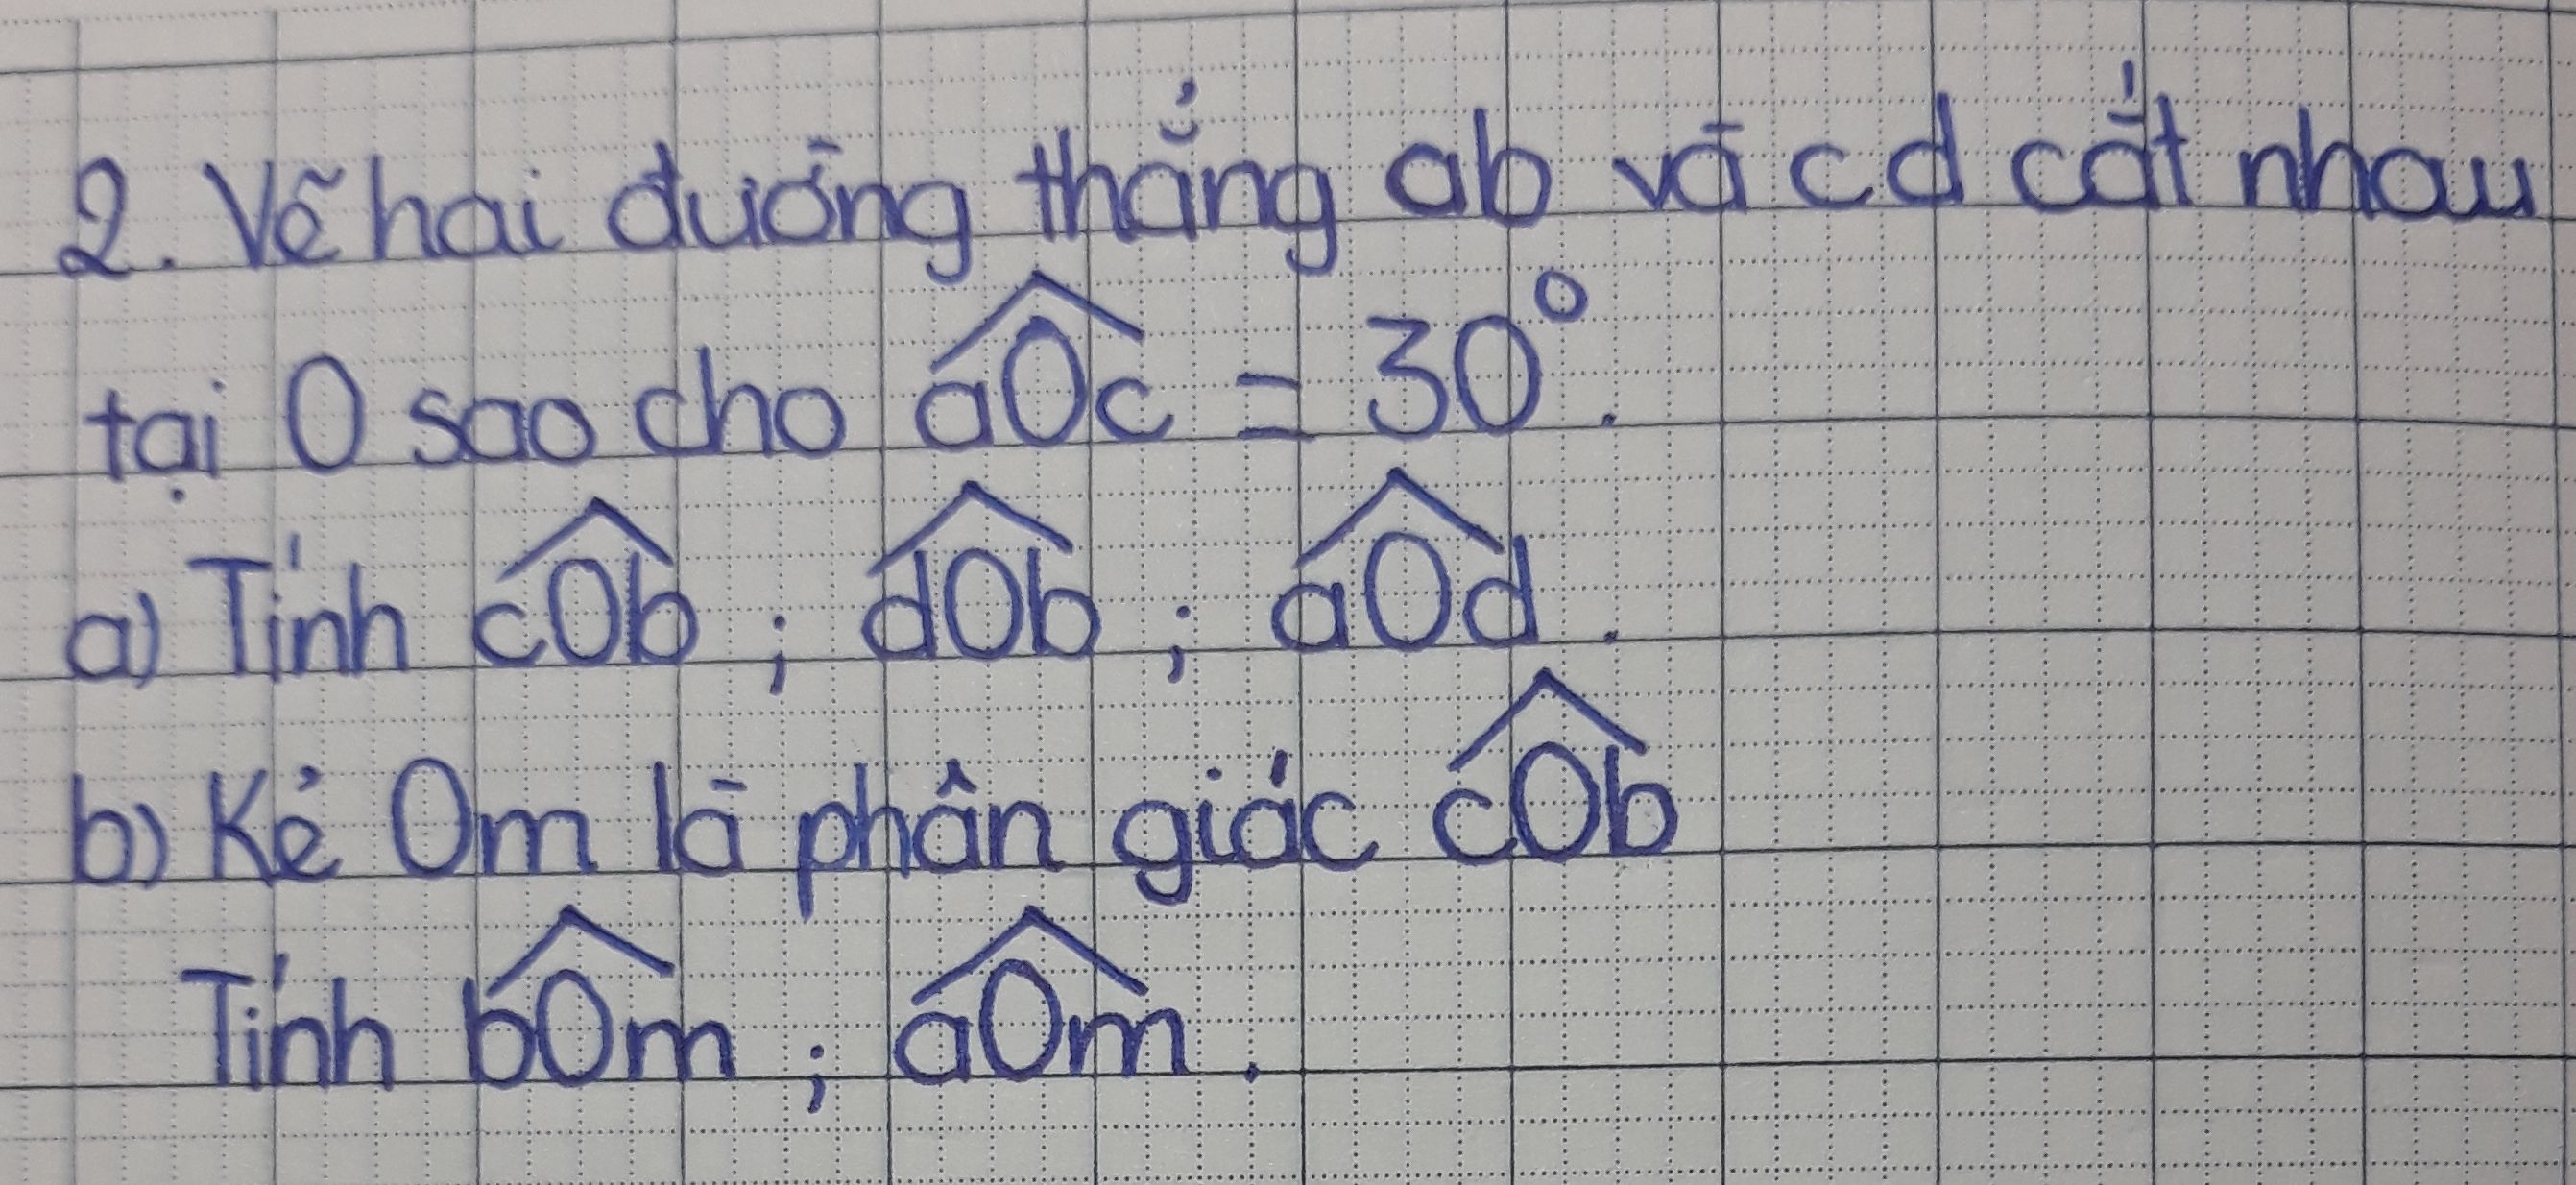 2. Vẽ hai đường thẳng ab và cd cắt nhau
tại O sao cho aOc = 30°.
a) Tính cOb ; dOb ; aOd.
b) Kẻ Om là phân giác cOb
Tính bOm ; aOm.